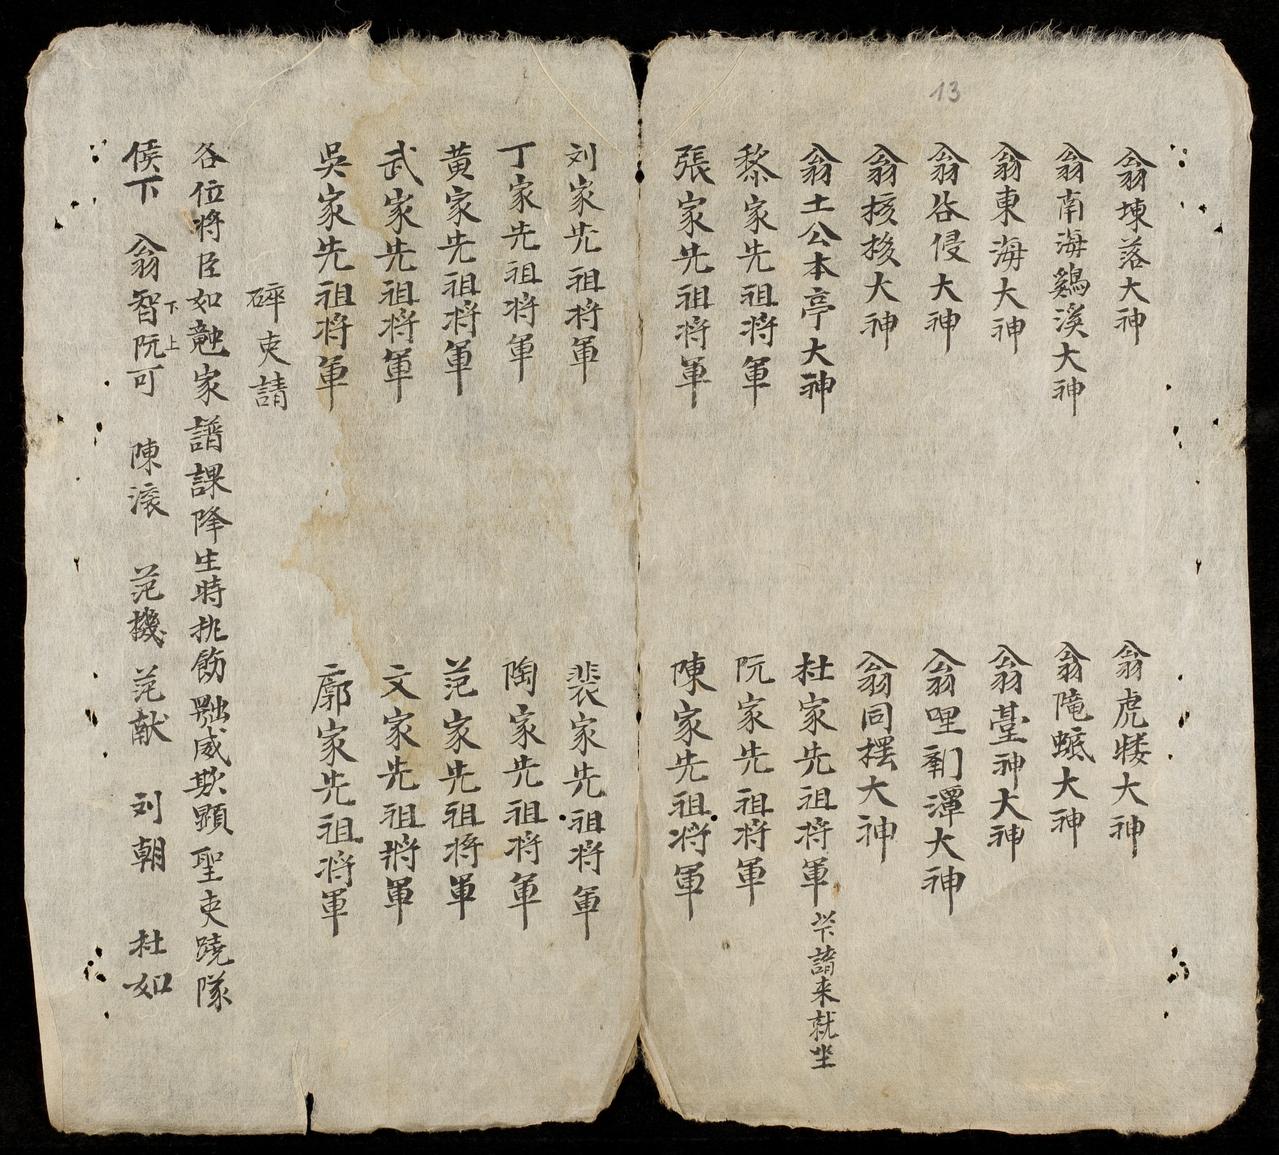 13
翁埬落大神 翁虎㹻大神
翁南海鷄溪大神 翁陦蚳大神
翁東海大神 翁臺神大神
翁谷侵大神 翁哩剩潭大神
翁核桉大神 翁同摆大神
翁土公本亭大神 杜家先祖將軍 㱏請来就坐
黎家先祖將軍 阮家先祖將軍
張家先祖將軍 陳家先祖將軍
刘家先祖將軍 裴家先祖將軍
丁家先祖將軍 陶家先祖將軍
黄家先祖將軍 范家先祖將軍
武家先祖將軍 文家先祖將軍
吳家先祖將軍 廓家先祖將軍
碎吏請
各位將臣如 家譜課降生時挑飭 威欺顕聖吏蹺隊
侯下 翁智阮可 下上 陳滚 范機 范献 刘朝 杜如